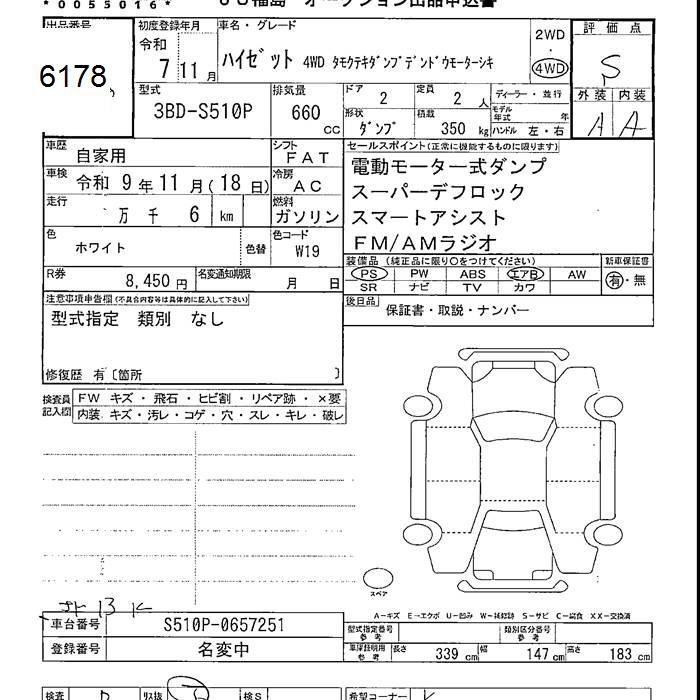 *0055016*
JU福島 オークション出品申込書
出品番号
6178
初度登録年月
令和
7 11 月
車名・グレード
ハイゼット 4WD タモクテキダンプデンドウモーターシキ
2WD
・
4WD
評価点
S
外装 内装
A A
型式
3BD-S510P
排気量
660
CC
ドア
2
定員
2 人
ディーラー・並行
モデル年式 年
形状
ダンプ
積載
350 kg
ハンドル 左・右
車歴
自家用
シフト
FAT
セールスポイント(正常に機能するものに限ります)
電動モーター式ダンプ
スーパーデフロック
スマートアシスト
FM/AMラジオ
車検
令和 9 年 11 月 (18 日)
冷房
AC
走行
万 千 6 km
燃料
ガソリン
色
ホワイト
色替
色コード
W19
装備品 (純正品に限り〇をつけてください)
新車保証書
PS PW ABS エアB AW
SR ナビ TV カワ
有・無
R券
8,450 円
名変通知期限
月 日
後日品
保証書・取説・ナンバー
注意事項申告欄(不具合内容等は具体的に記入して下さい)
型式指定 類別 なし
修復歴 有〔箇所 〕
検査員記入欄
FW キズ・飛石・ヒビ割・リペア跡・×要
内装 キズ・汚レ・コゲ・穴・スレ・キレ・破レ
スペア
A-キズ E-エクボ U-凹み W-補修跡 S-サビ C-腐食 XX-交換済
車台番号
S510P-0657251
登録番号
名変中
型式指定番号
参考
類別区分番号
参考
車庫証明用
参考
長さ 339 cm 幅 147 cm 高さ 183 cm
検査
下取
検S
希望コーナー